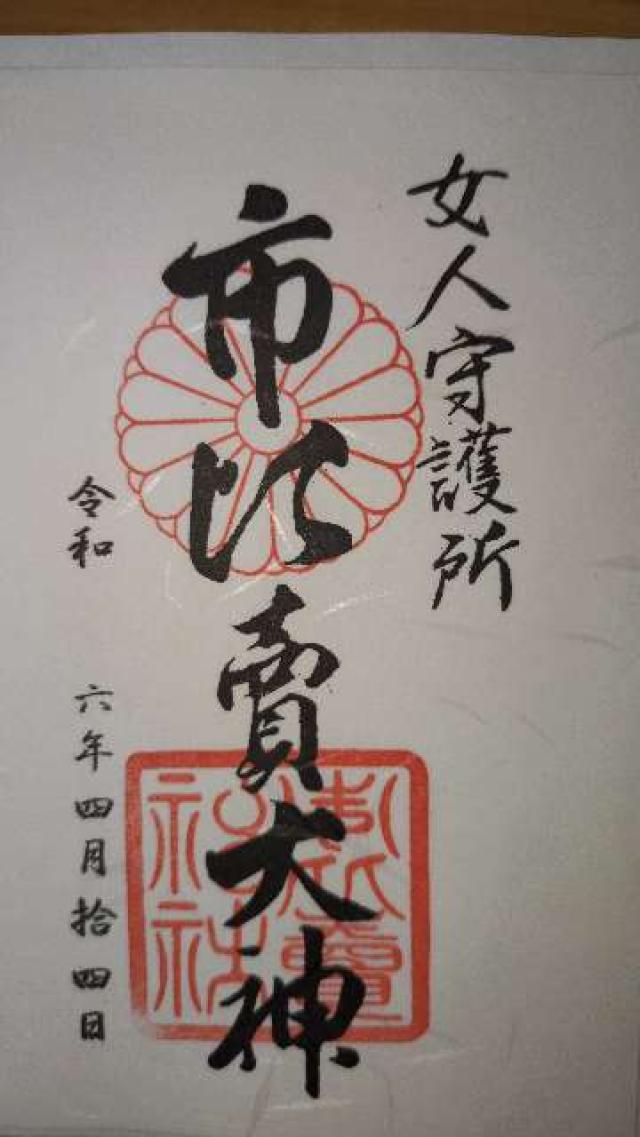 女人守護所
市比賣大神
令和 六年四月拾四日